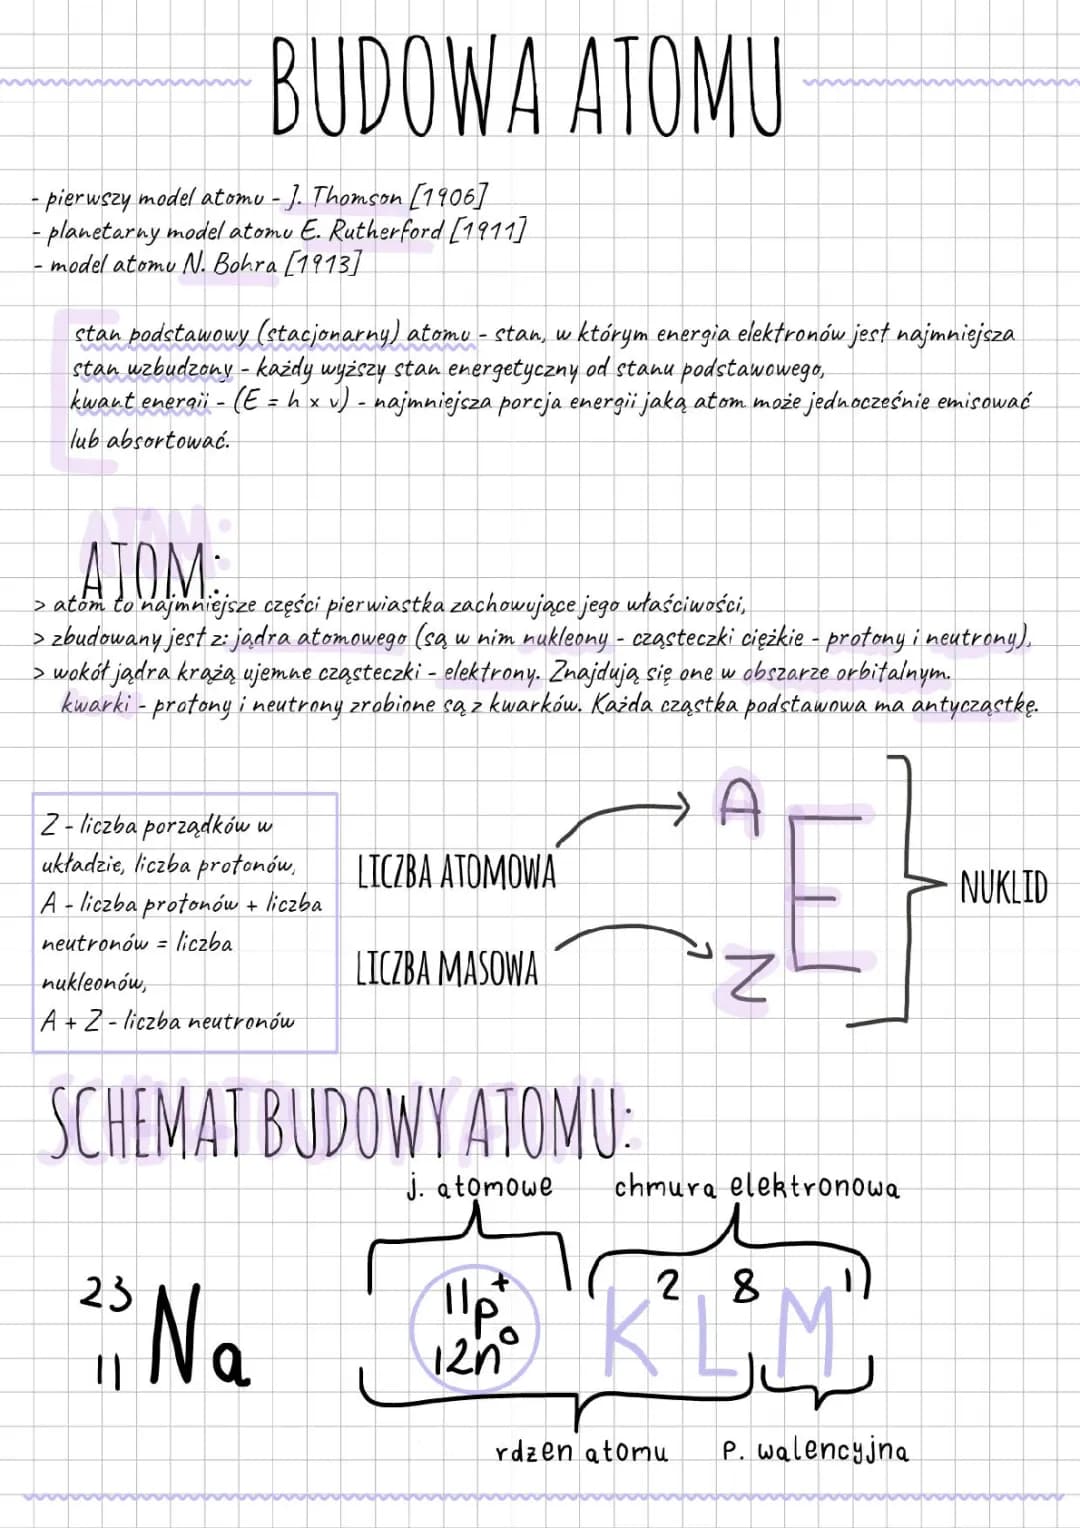 BUDOWA ATOMU
- pierwszy model atomu - J. Thomson [1906]
- planetarny model atomu E. Rutherford [1911]
- model atomu N. Bohra [1913]
stan podstawowy (stacjonarny) atomu - stan, w którym energia elektronów jest najmniejsza
stan wzbudzony - każdy wyższy stan energetyczny od stanu podstawowego,
kwant energii - (E = h x v) - najmniejsza porcja energii jaką atom może jednocześnie emisować
lub absortować.
ATOM:
> atom to najmniejsze części pierwiastka zachowujące jego właściwości,
> zbudowany jest z: jądra atomowego (są w nim nukleony - cząsteczki ciężkie - protony i neutrony),
> wokół jądra krążą ujemne cząsteczki - elektrony. Znajdują się one w obszarze orbitalnym.
kwarki - protony i neutrony zrobione są z kwarków. Każda cząstka podstawowa ma antycząstkę.
Z - liczba porządków w
układzie, liczba protonów,
A - liczba protonów + liczba
neutronów = liczba
nukleonów,
A + Z - liczba neutronów
LICZBA ATOMOWA
LICZBA MASOWA
A
E
Z
NUKLID
SCHEMAT BUDOWY ATOMU:
j. atomowe chmura elektronowa
23
11 Na
11p+
12n0
2 8 1
K L M
rdzen atomu P. walencyjna